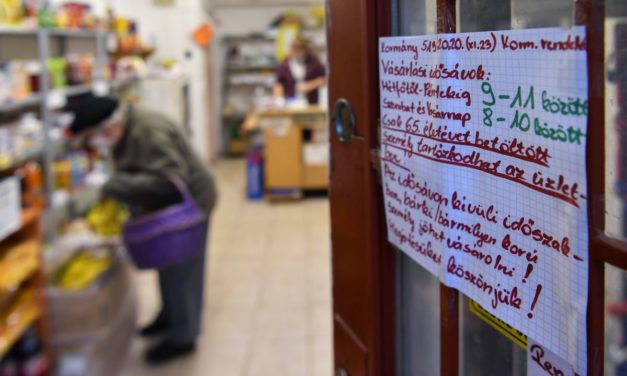 Kormány 519.2020. (XI.23) Korm. rendelet
Vásárlási idősávok:
Hétfőtől-Péntekig 9-11 között
Szombat és vasárnap 8-10 között
Csak 65. életévet betöltött
személy tartózkodhat az üzlet-
ben.
Az idősávon kívüli időszak-
ban, bárki/bármilyen korú
személy jöhet vásárolni!
köszönjük!